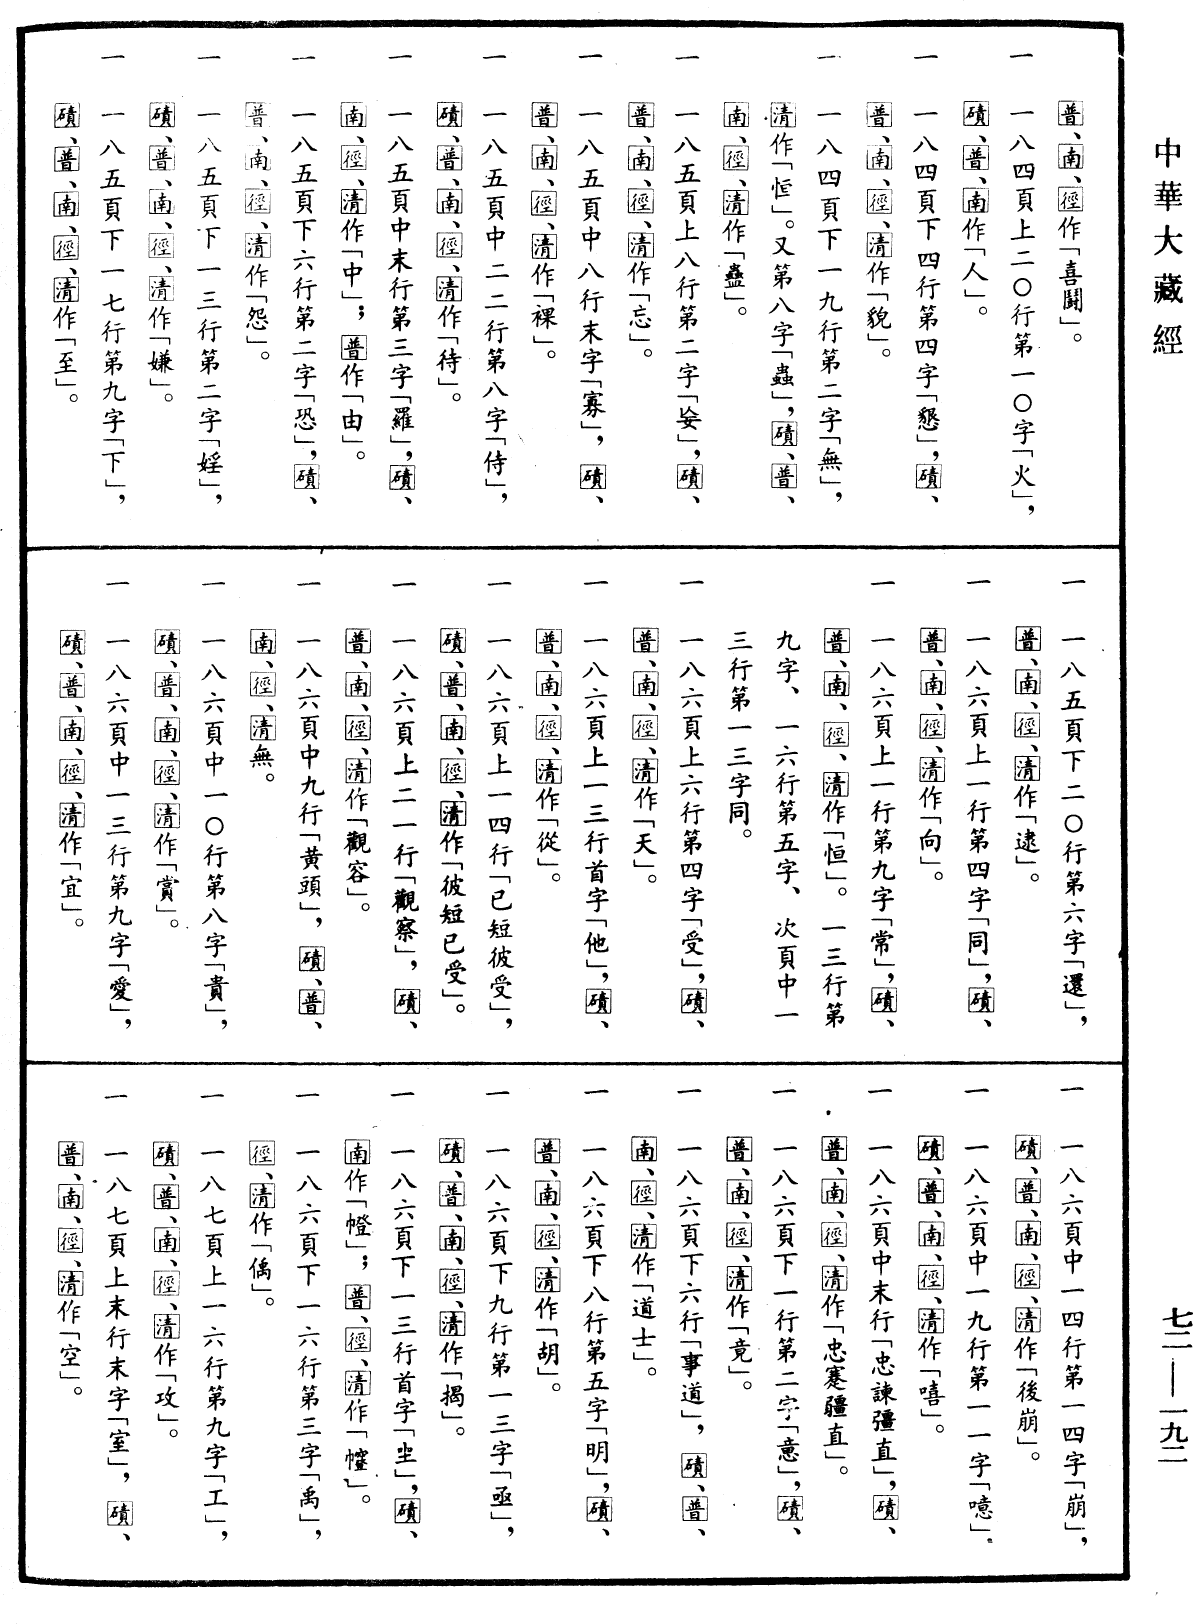 中華大藏經
七二—一九二
普、南、徑作「喜鬪」。
一 一八四頁上二〇行第一〇字「火」，
磧、普、南作「人」。
一 一八四頁下四行第四字「懇」，磧、
普、南、徑、清作「貌」。
一 一八四頁下一九行第二字「無」，
清作「恒」。又第八字「蟲」，磧、普、
南、徑、清作「蠱」。
一 一八五頁上八行第二字「妄」，磧、
普、南、徑、清作「忘」。
一 一八五頁中八行末字「寡」，磧、
普、南、徑、清作「裸」。
一 一八五頁中二二行第八字「侍」，
磧、普、南、徑、清作「待」。
一 一八五頁中末行第三字「羅」，磧、
南、徑、清作「中」；普作「由」。
一 一八五頁下六行第二字「恐」，磧、
普、南、徑、清作「怨」。
一 一八五頁下一三行第二字「婬」，
磧、普、南、徑、清作「嫌」。
一 一八五頁下一七行第九字「下」，
磧、普、南、徑、清作「至」。
一 一八五頁下二〇行第六字「還」，
普、南、徑、清作「逮」。
一 一八六頁上一行第四字「同」，磧、
普、南、徑、清作「向」。
一 一八六頁上一行第九字「常」，磧、
普、南、徑、清作「恒」。一三行第
九字、一六行第五字、次頁中一
三行第一三字同。
一 一八六頁上六行第四字「受」，磧、
普、南、徑、清作「天」。
一 一八六頁上一三行首字「他」，磧、
普、南、徑、清作「從」。
一 一八六頁上一四行「已短彼受」，
磧、普、南、徑、清作「彼短已受」。
一 一八六頁上二一行「觀察」，磧、
普、南、徑、清作「觀容」。
一 一八六頁中九行「黃頭」，磧、普、
南、徑、清無。
一 一八六頁中一〇行第八字「貴」，
磧、普、南、徑、清作「賞」。
一 一八六頁中一三行第九字「愛」，
磧、普、南、徑、清作「宜」。
一 一八六頁中一四行第一四字「崩」，
磧、普、南、徑、清作「後崩」。
一 一八六頁中一九行第一一字「噫」，
磧、普、南、徑、清作「嘻」。
一 一八六頁中末行「忠諫彊直」，磧、
普、南、徑、清作「忠蹇疆直」。
一 一八六頁下一行第二字「意」，磧、
普、南、徑、清作「竟」。
一 一八六頁下六行「事道」，磧、普、
南、徑、清作「道士」。
一 一八六頁下八行第五字「明」，磧、
普、南、徑、清作「胡」。
一 一八六頁下九行第一三字「亟」，
磧、普、南、徑、清作「揭」。
一 一八六頁下一三行首字「㘴」，磧、
南作「幢」；普、徑、清作「㡧」。
一 一八六頁下一六行第三字「禹」，
徑、清作「偊」。
一 一八七頁上一六行第九字「工」，
磧、普、南、徑、清作「攻」。
一 一八七頁上末行末字「室」，磧、
普、南、徑、清作「空」。